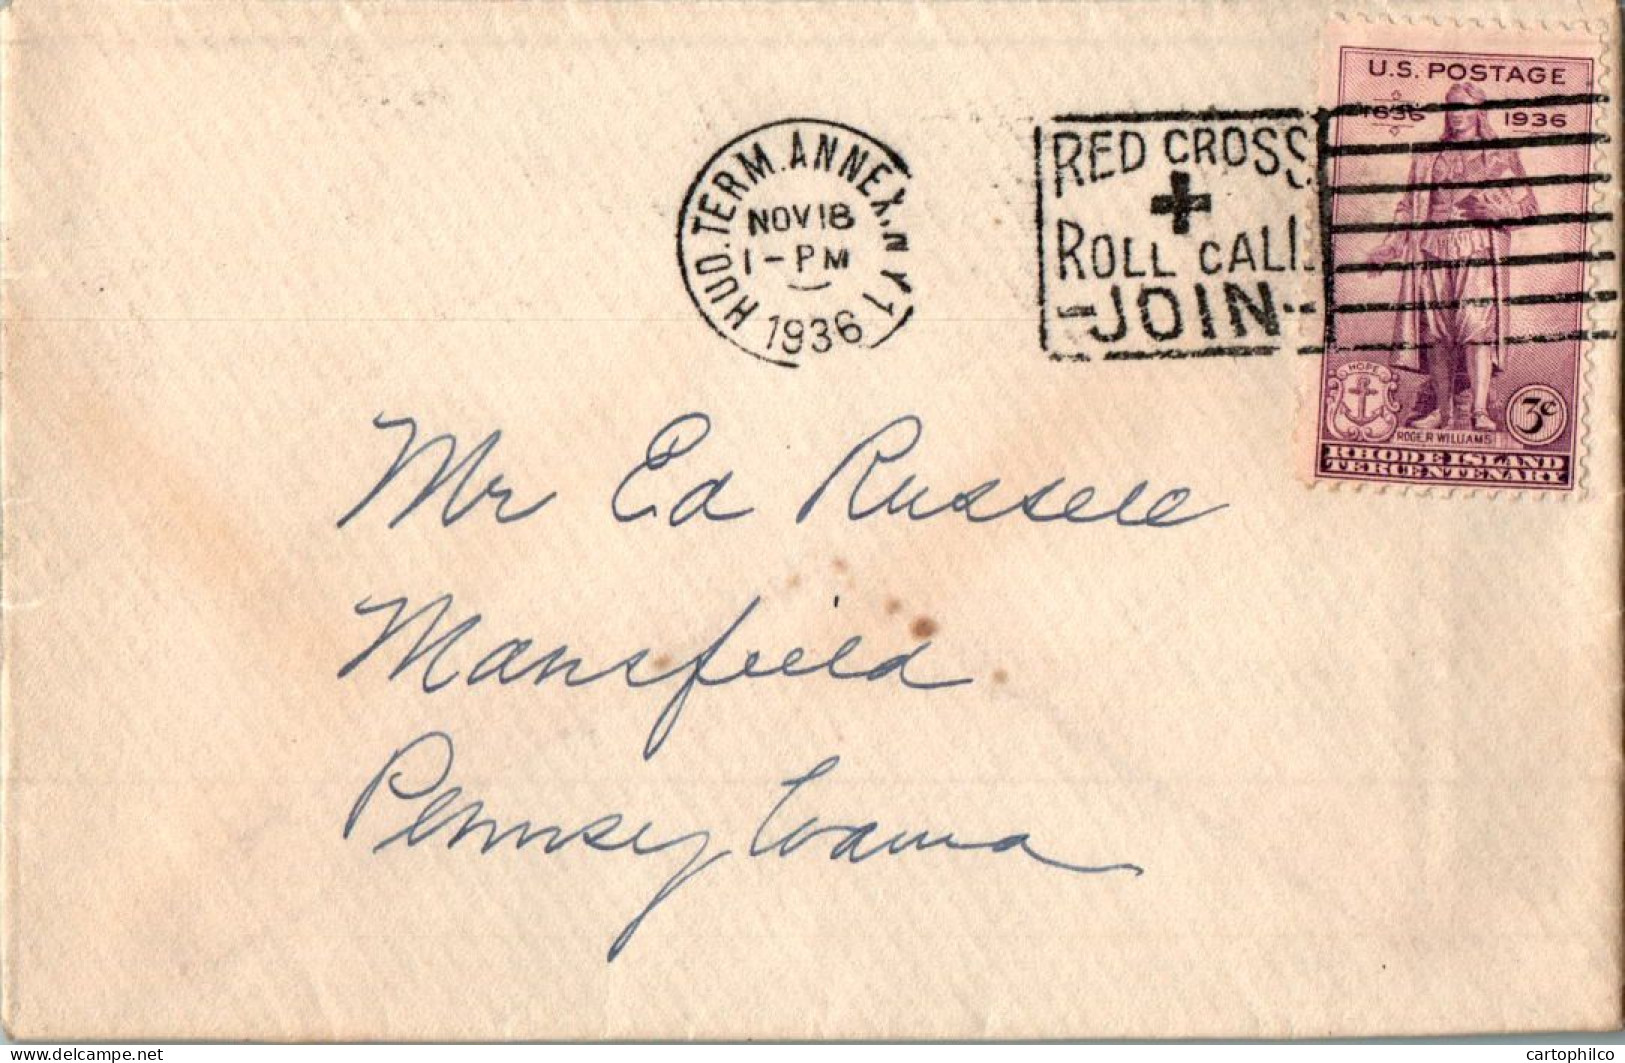 HUD. TERM. ANNEX. N.Y. 1
NOV 18
1-PM
1936
RED CROSS
ROLL CALL
-JOIN-
U.S. POSTAGE
1636 1936
HOPE
3¢
ROGER WILLIAMS
RHODE ISLAND
TERCENTENARY
Mr Ed Russell
Mansfield
Pennsylvania
delcampe.net
cartophilco